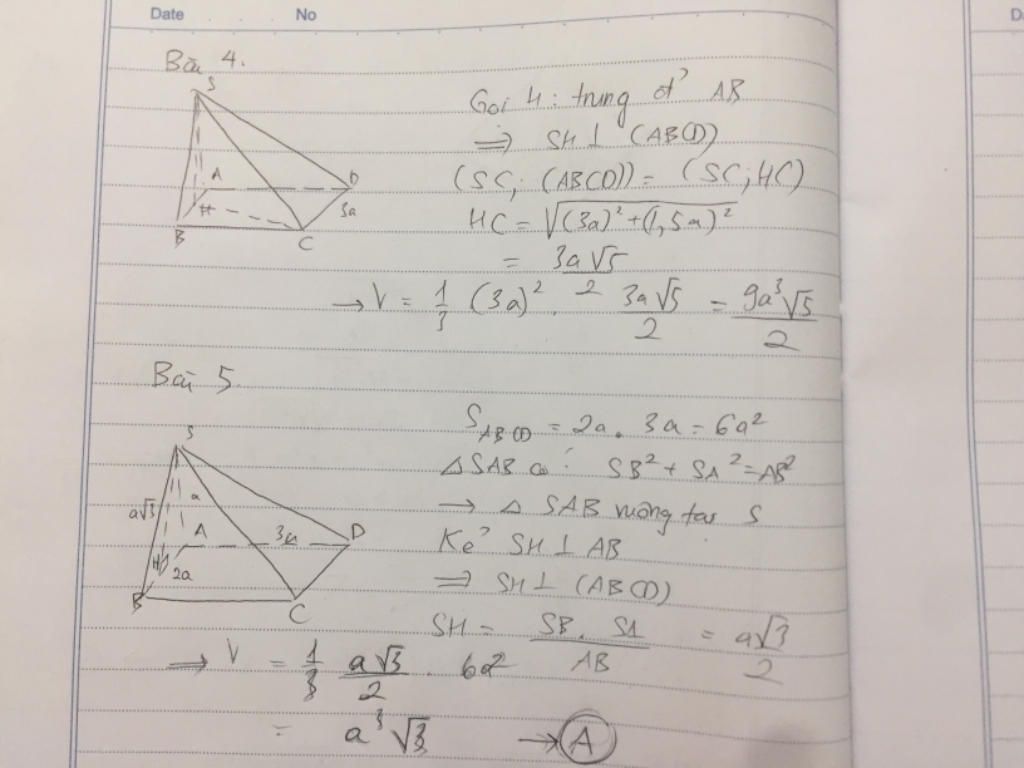 Date No
Bài 4.
S
A
D
H
3a
B
C
Gọi H: trung đ' AB
⟹ SH ⊥ (ABCD)
(SC; (ABCD)) = (SC; HC)
HC = √((3a)² + (1,5a)²)
= 3a√5/2
→ V = 1/3 (3a)² · 3a√5/2 = 9a³√5/2
Bài 5.
S
a√3
a
A
3a
D
H
2a
B
C
S_ABCD = 2a . 3a = 6a²
△SAB có : SB² + SA² = AB²
→ △ SAB vuông tại S
Kẻ SH ⊥ AB
⟹ SH ⊥ (ABCD)
SH = SB . SA/AB = a√3/2
→ V = 1/3 a√3/2 . 6a²
= a³√3 → A